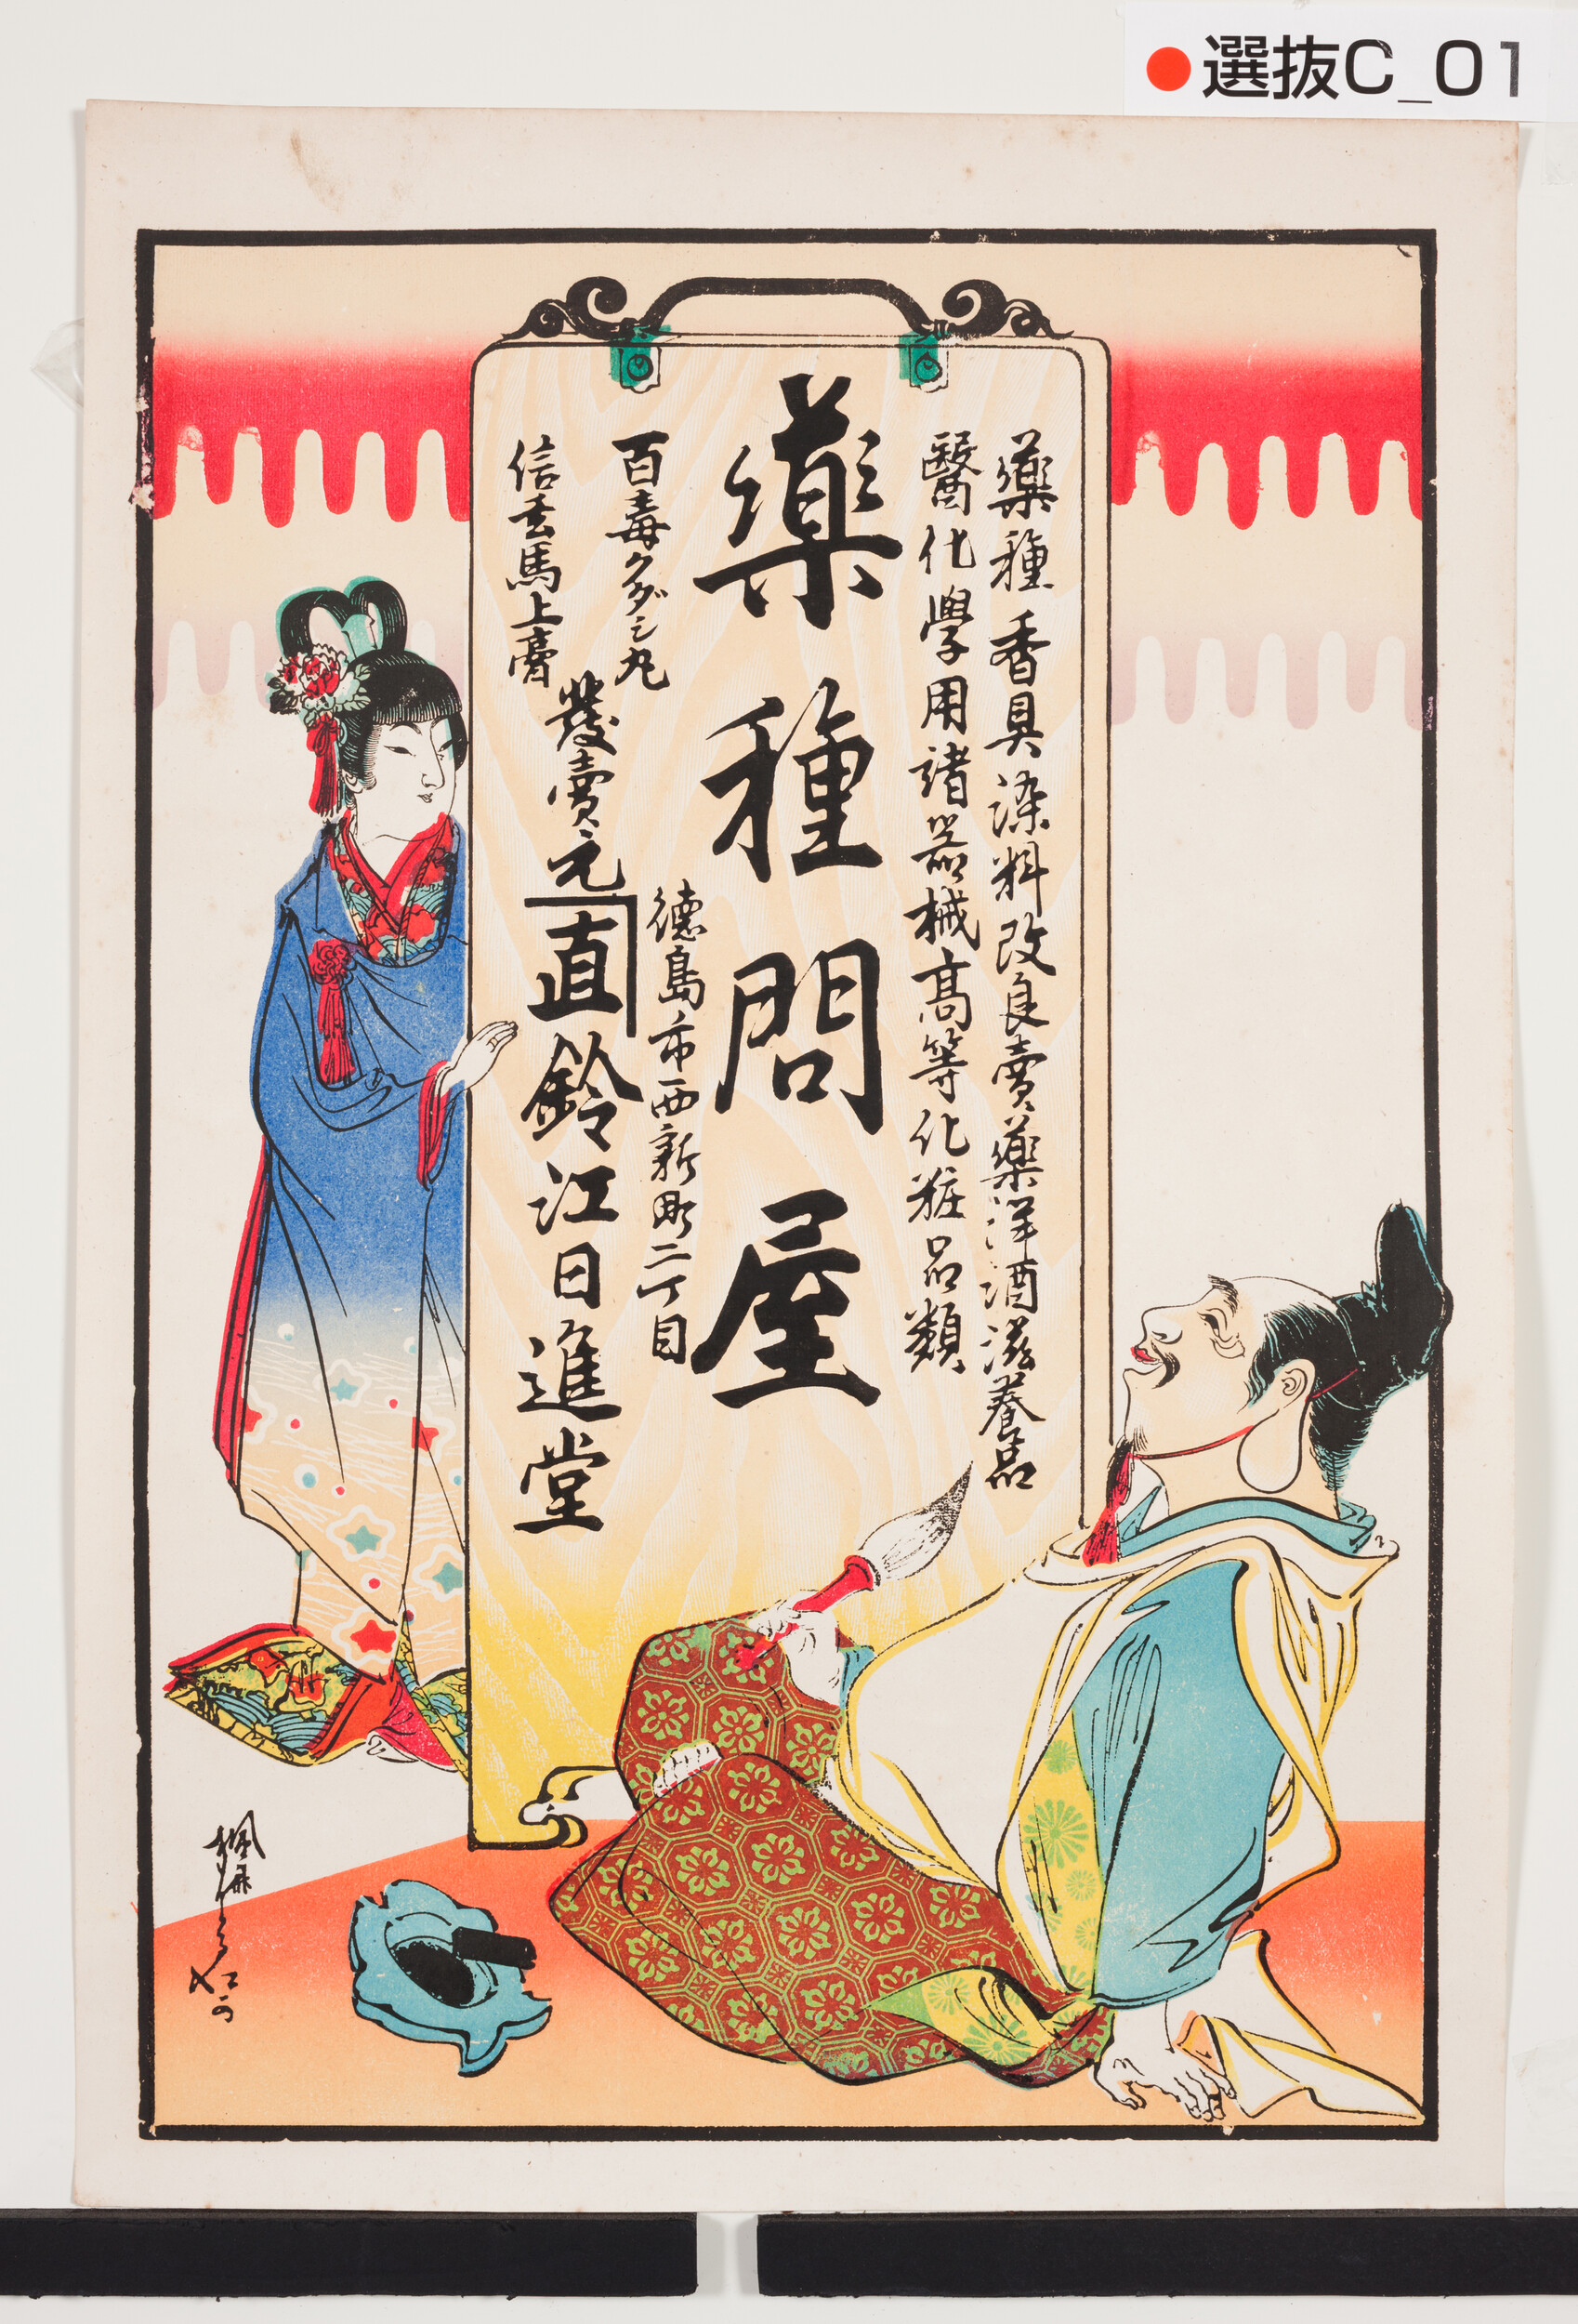 選抜C_01
藥種香具染料改良賣藥洋酒滋養品
醫化學用諸器械高等化粧品類
藥種問屋
百毒クダシ丸
信玄馬上膏
發賣元
徳島市西新町二丁目
直
鈴江日進堂